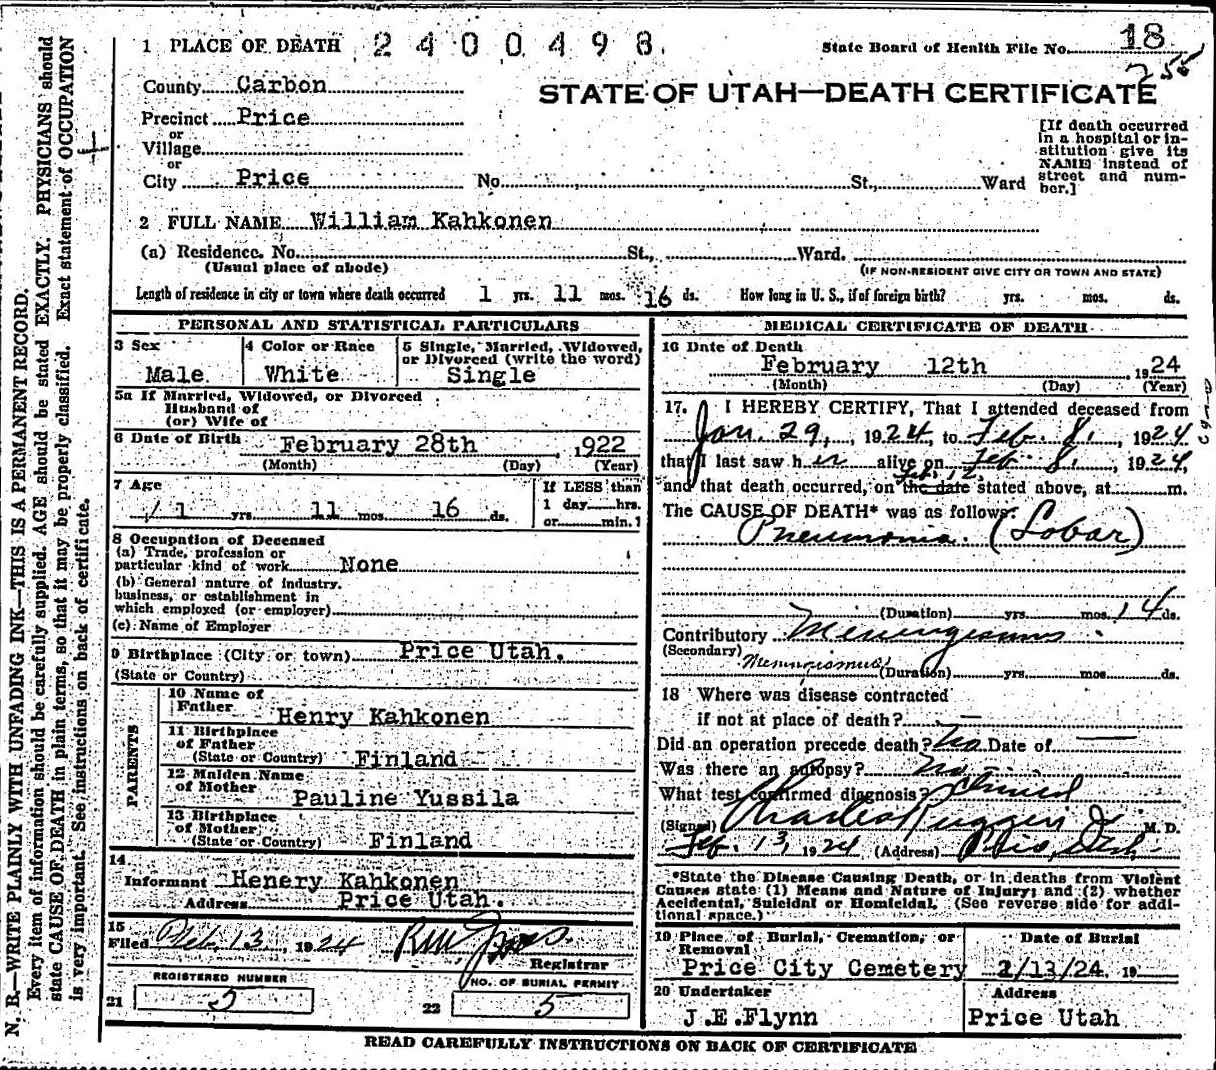 1 PLACE OF DEATH 2400498. State Board of Health File No. 18
255
County Carbon
STATE OF UTAH—DEATH CERTIFICATE
Precinct Price
or
Village
or
City Price No. St., Ward
[If death occurred
in a hospital or in-
stitution give its
NAME instead of
street and num-
ber.]
2 FULL NAME William Kahkonen
(a) Residence. No. St., Ward.
(Usual place of abode) (IF NON-RESIDENT GIVE CITY OR TOWN AND STATE)
Length of residence in city or town where death occurred 1 yrs. 11 mos. 16 ds. How long in U. S., if of foreign birth? yrs. mos. ds.
PERSONAL AND STATISTICAL PARTICULARS
3 Sex 4 Color or Race 5 Single, Married, Widowed,
or Divorced (write the word)
Male White Single
5a If Married, Widowed, or Divorced
Husband of
(or) Wife of
6 Date of Birth February 28th, 1922
(Month) (Day) (Year)
7 Age If LESS than
1 yrs 11 mos 16 ds. 1 day hrs.
or min. 1
8 Occupation of Deceased
(a) Trade, profession or
particular kind of work None
(b) General nature of industry.
business, or establishment in
which employed (or employer)
(c) Name of Employer
9 Birthplace (City or town) Price Utah.
(State or Country)
PARENTS
10 Name of
Father Henry Kahkonen
11 Birthplace
of Father
(State or Country) Finland
12 Maiden Name
of Mother Pauline Yussila
13 Birthplace
of Mother
(State or Country) Finland
14
Informant Henery Kahkonen
Address Price Utah.
15
Filed Feb. 13, 1924
Registrar
REGISTERED NUMBER NO. OF BURIAL PERMIT
21 5 22 5
MEDICAL CERTIFICATE OF DEATH
16 Date of Death
February 12th 1924
(Month) (Day) (Year)
17. I HEREBY CERTIFY, That I attended deceased from
Jan. 29, 1924, to Feb. 8, 1924
that I last saw h alive on Feb. 8, 1924,
Feb. 12,
and that death occurred, on the date stated above, at m.
The CAUSE OF DEATH* was as follows:
Pneumonia. (Lobar)
(Duration) yrs. mos. 14 ds.
Contributory Meningismus
(Secondary) Meningismus
(Duration) yrs. mos ds.
18 Where was disease contracted
if not at place of death? —
Did an operation precede death? No Date of —
Was there an autopsy? No
What test confirmed diagnosis? Clinical
(Signed) Charles Ruggeri Jr M. D.
Feb. 13, 1924 (Address) Price, Utah
*State the Disease Causing Death, or in deaths from Violent
Causes state (1) Means and Nature of Injury; and (2) whether
Accidental, Suicidal or Homicidal. (See reverse side for addi-
tional space.)
19 Place of Burial, Cremation, or Date of Burial
Removal
Price City Cemetery 2/13/24, 19
20 Undertaker Address
J.E.Flynn Price Utah
READ CAREFULLY INSTRUCTIONS ON BACK OF CERTIFICATE
N. B.—WRITE PLAINLY WITH UNFADING INK—THIS IS A PERMANENT RECORD.
Every item of information should be carefully supplied. AGE should be stated EXACTLY. PHYSICIANS should
state CAUSE OF DEATH in plain terms, so that it may be properly classified. Exact statement of OCCUPATION
is very important. See instructions on back of certificate.